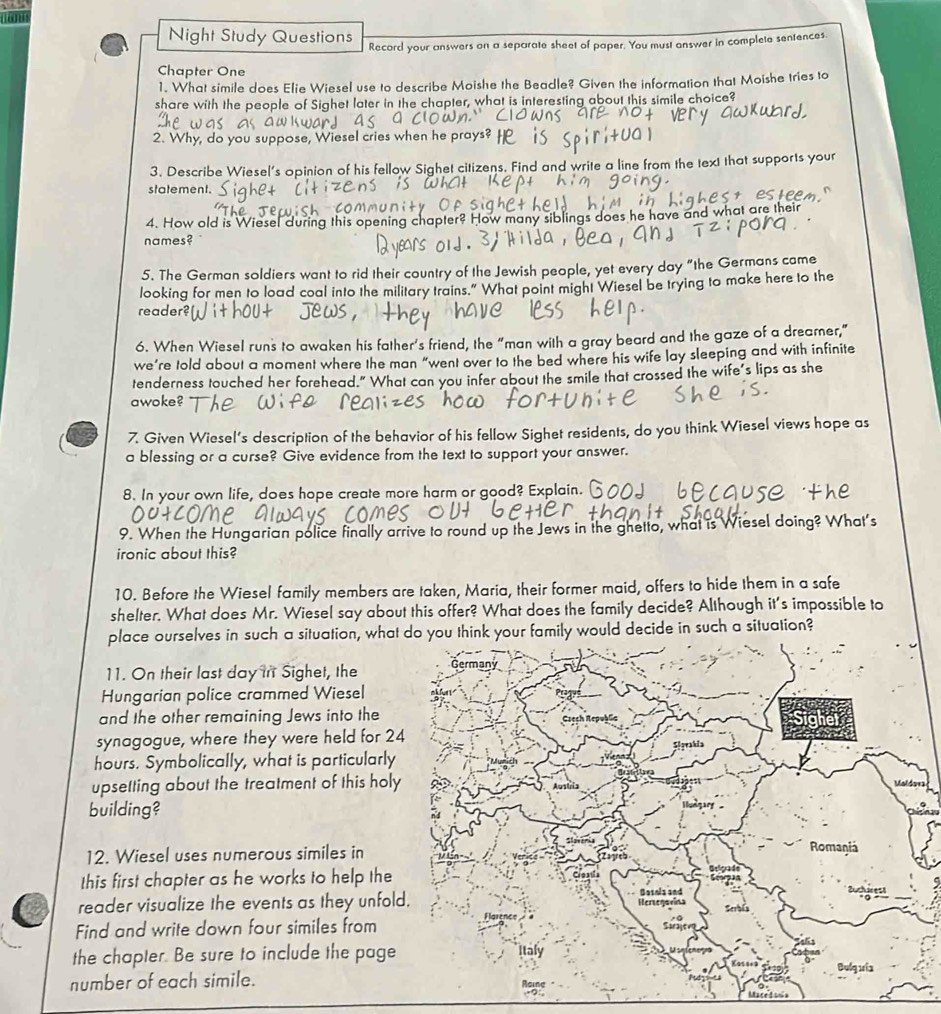 Night Study Questions
Record your answers on a separate sheet of paper. You must answer in complete sentences.
Chapter One
1. What simile does Elie Wiesel use to describe Moishe the Beadle? Given the information that Moishe tries to
share with the people of Sighet later in the chapter, what is interesting about this simile choice?
"he was as awkward as a clown." clowns are not very awkward.
2. Why, do you suppose, Wiesel cries when he prays? He is spiritual
3. Describe Wiesel's opinion of his fellow Sighet citizens. Find and write a line from the text that supports your
statement. Sighet citizens is what kept him going.
"The Jewish community of sighet held him in highest esteem."
4. How old is Wiesel during this opening chapter? How many siblings does he have and what are their
names? 12 years old. 3; Hilda, Bea, and Tzipora.
5. The German soldiers want to rid their country of the Jewish people, yet every day "the Germans came
looking for men to load coal into the military trains." What point might Wiesel be trying to make here to the
reader? Without Jews, they have less help.
6. When Wiesel runs to awaken his father's friend, the "man with a gray beard and the gaze of a dreamer,"
we're told about a moment where the man "went over to the bed where his wife lay sleeping and with infinite
tenderness touched her forehead." What can you infer about the smile that crossed the wife's lips as she
awoke? The wife realizes how fortunite she is.
7. Given Wiesel's description of the behavior of his fellow Sighet residents, do you think Wiesel views hope as
a blessing or a curse? Give evidence from the text to support your answer.
8. In your own life, does hope create more harm or good? Explain. Good because the
outcome always comes out better than it
9. When the Hungarian police finally arrive to round up the Jews in the ghetto, what is Wiesel doing? What's
ironic about this?
10. Before the Wiesel family members are taken, Maria, their former maid, offers to hide them in a safe
shelter. What does Mr. Wiesel say about this offer? What does the family decide? Although it's impossible to
place ourselves in such a situation, what do you think your family would decide in such a situation?
11. On their last day in Sighet, the
Hungarian police crammed Wiesel
and the other remaining Jews into the
synagogue, where they were held for 24
hours. Symbolically, what is particularly
upsetting about the treatment of this holy
building?
12. Wiesel uses numerous similes in
this first chapter as he works to help the
reader visualize the events as they unfold.
Find and write down four similes from
the chapter. Be sure to include the page
number of each simile.
Germany
Prague
Czech Republic
Sighet
Slovakia
Munich
Vienna
Bratislava
Budapest
Austria
Moldova
Hungary
Chisinau
Slovenia
Romania
Milan
Venice
Zagreb
Croatia
Belgrade
Bosnia and
Herzegovina
Bucharest
Serbia
Florence
Sarajevo
Italy
Kosovo
Bulgaria
Rome
Macedonia